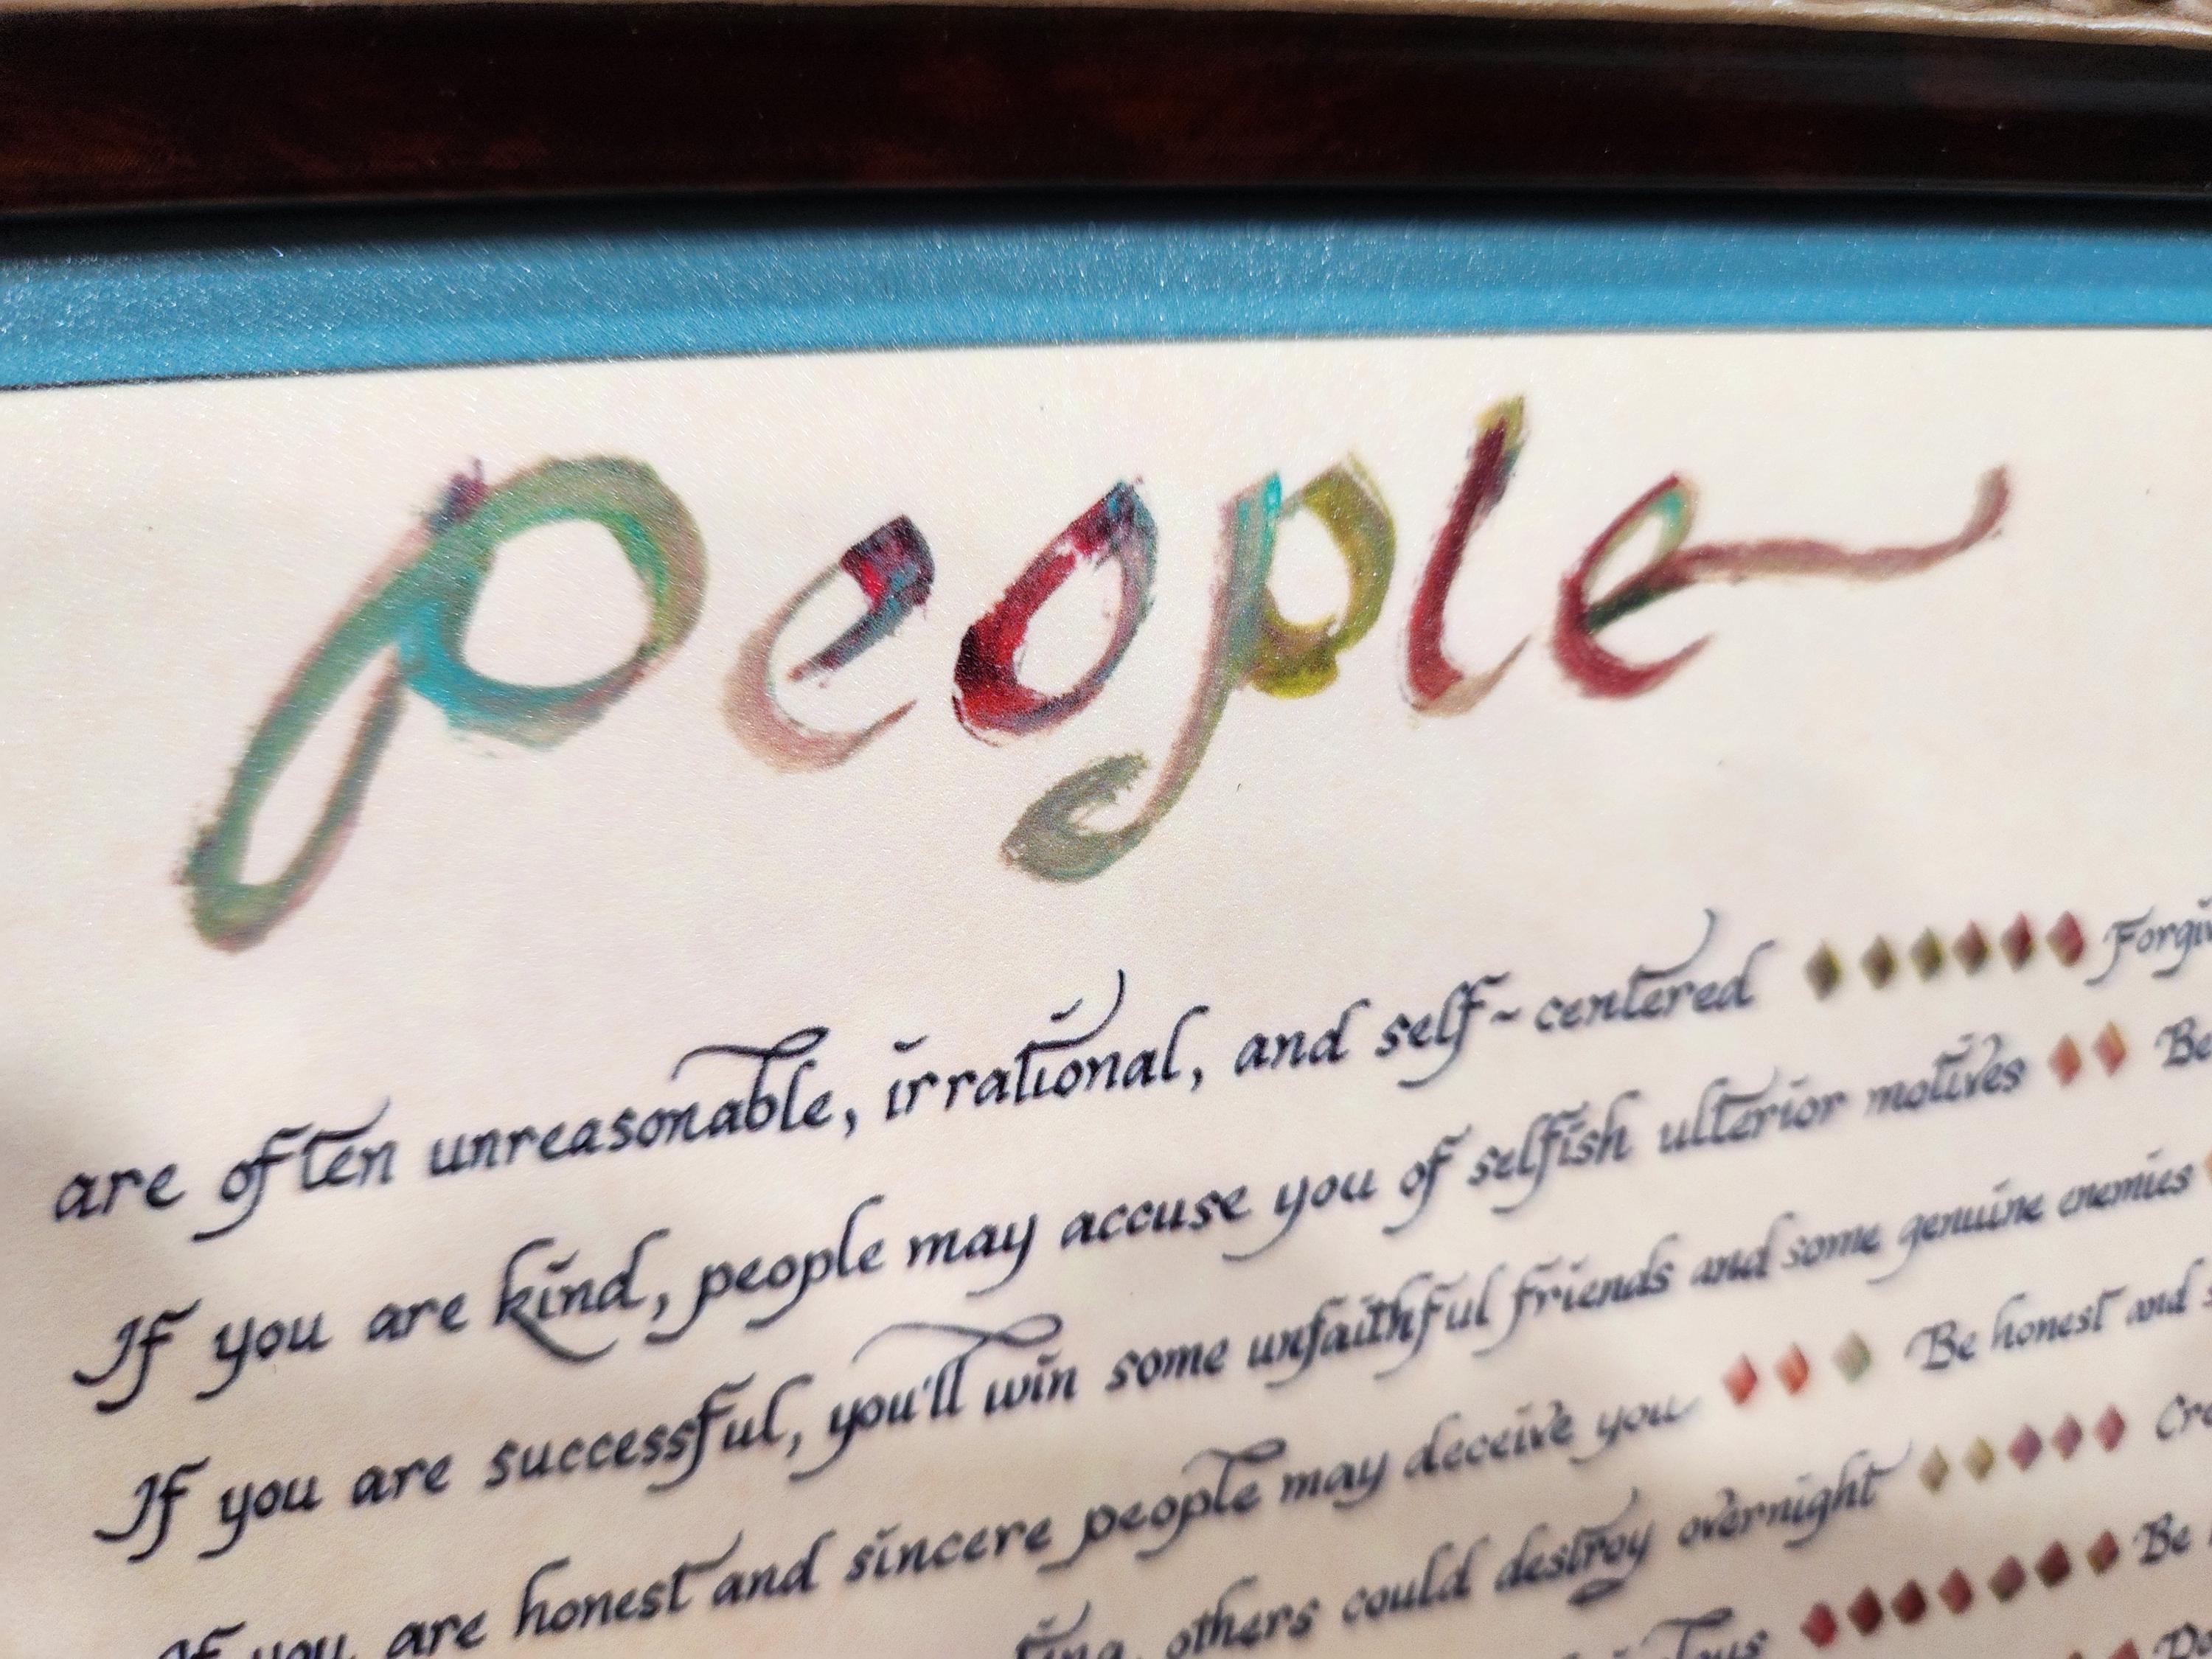 people
are often unreasonable, irrational, and self-centered
If you are kind, people may accuse you of selfish ulterior motives Be
If you are successful, you'll win some unfaithful friends and some genuine enemies
If you are honest and sincere people may deceive you Be honest and
others could destroy overnight
Be